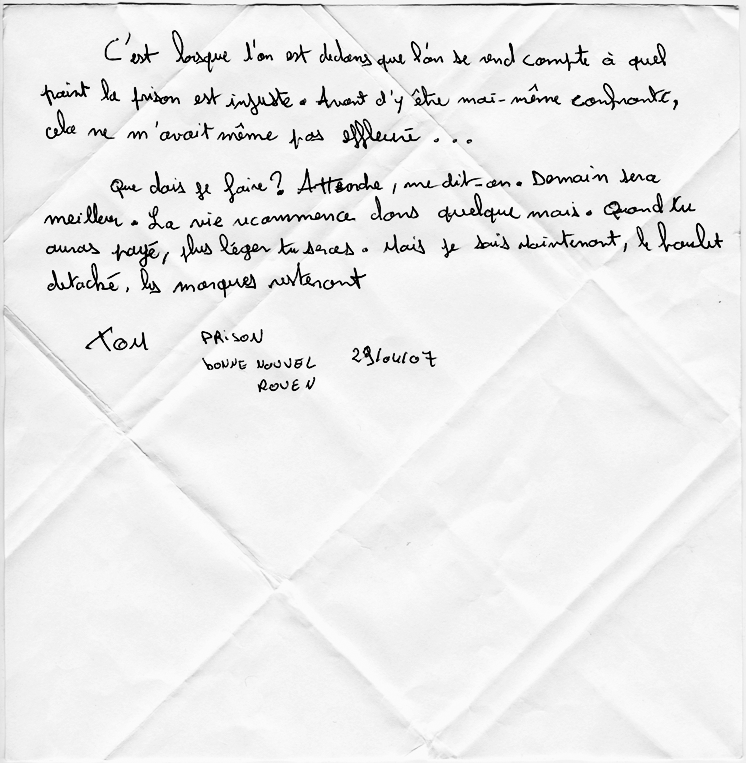 C'est lorsque l'on est dedans que l'on se rend compte à quel
point la prison est injuste. Avant d'y être moi-même confronté,
cela ne m'avait même pas effleuré...
Que dois je faire? Attendre, me dit-on. Demain sera
meilleur. La vie recommence dans quelque mois. Quand tu
auras payé, plus léger tu seras. Mais je sais maintenant, le boulet
detaché, les marques resteront
TOM PRISON
BONNE NOUVEL 29/04/07
ROUEN